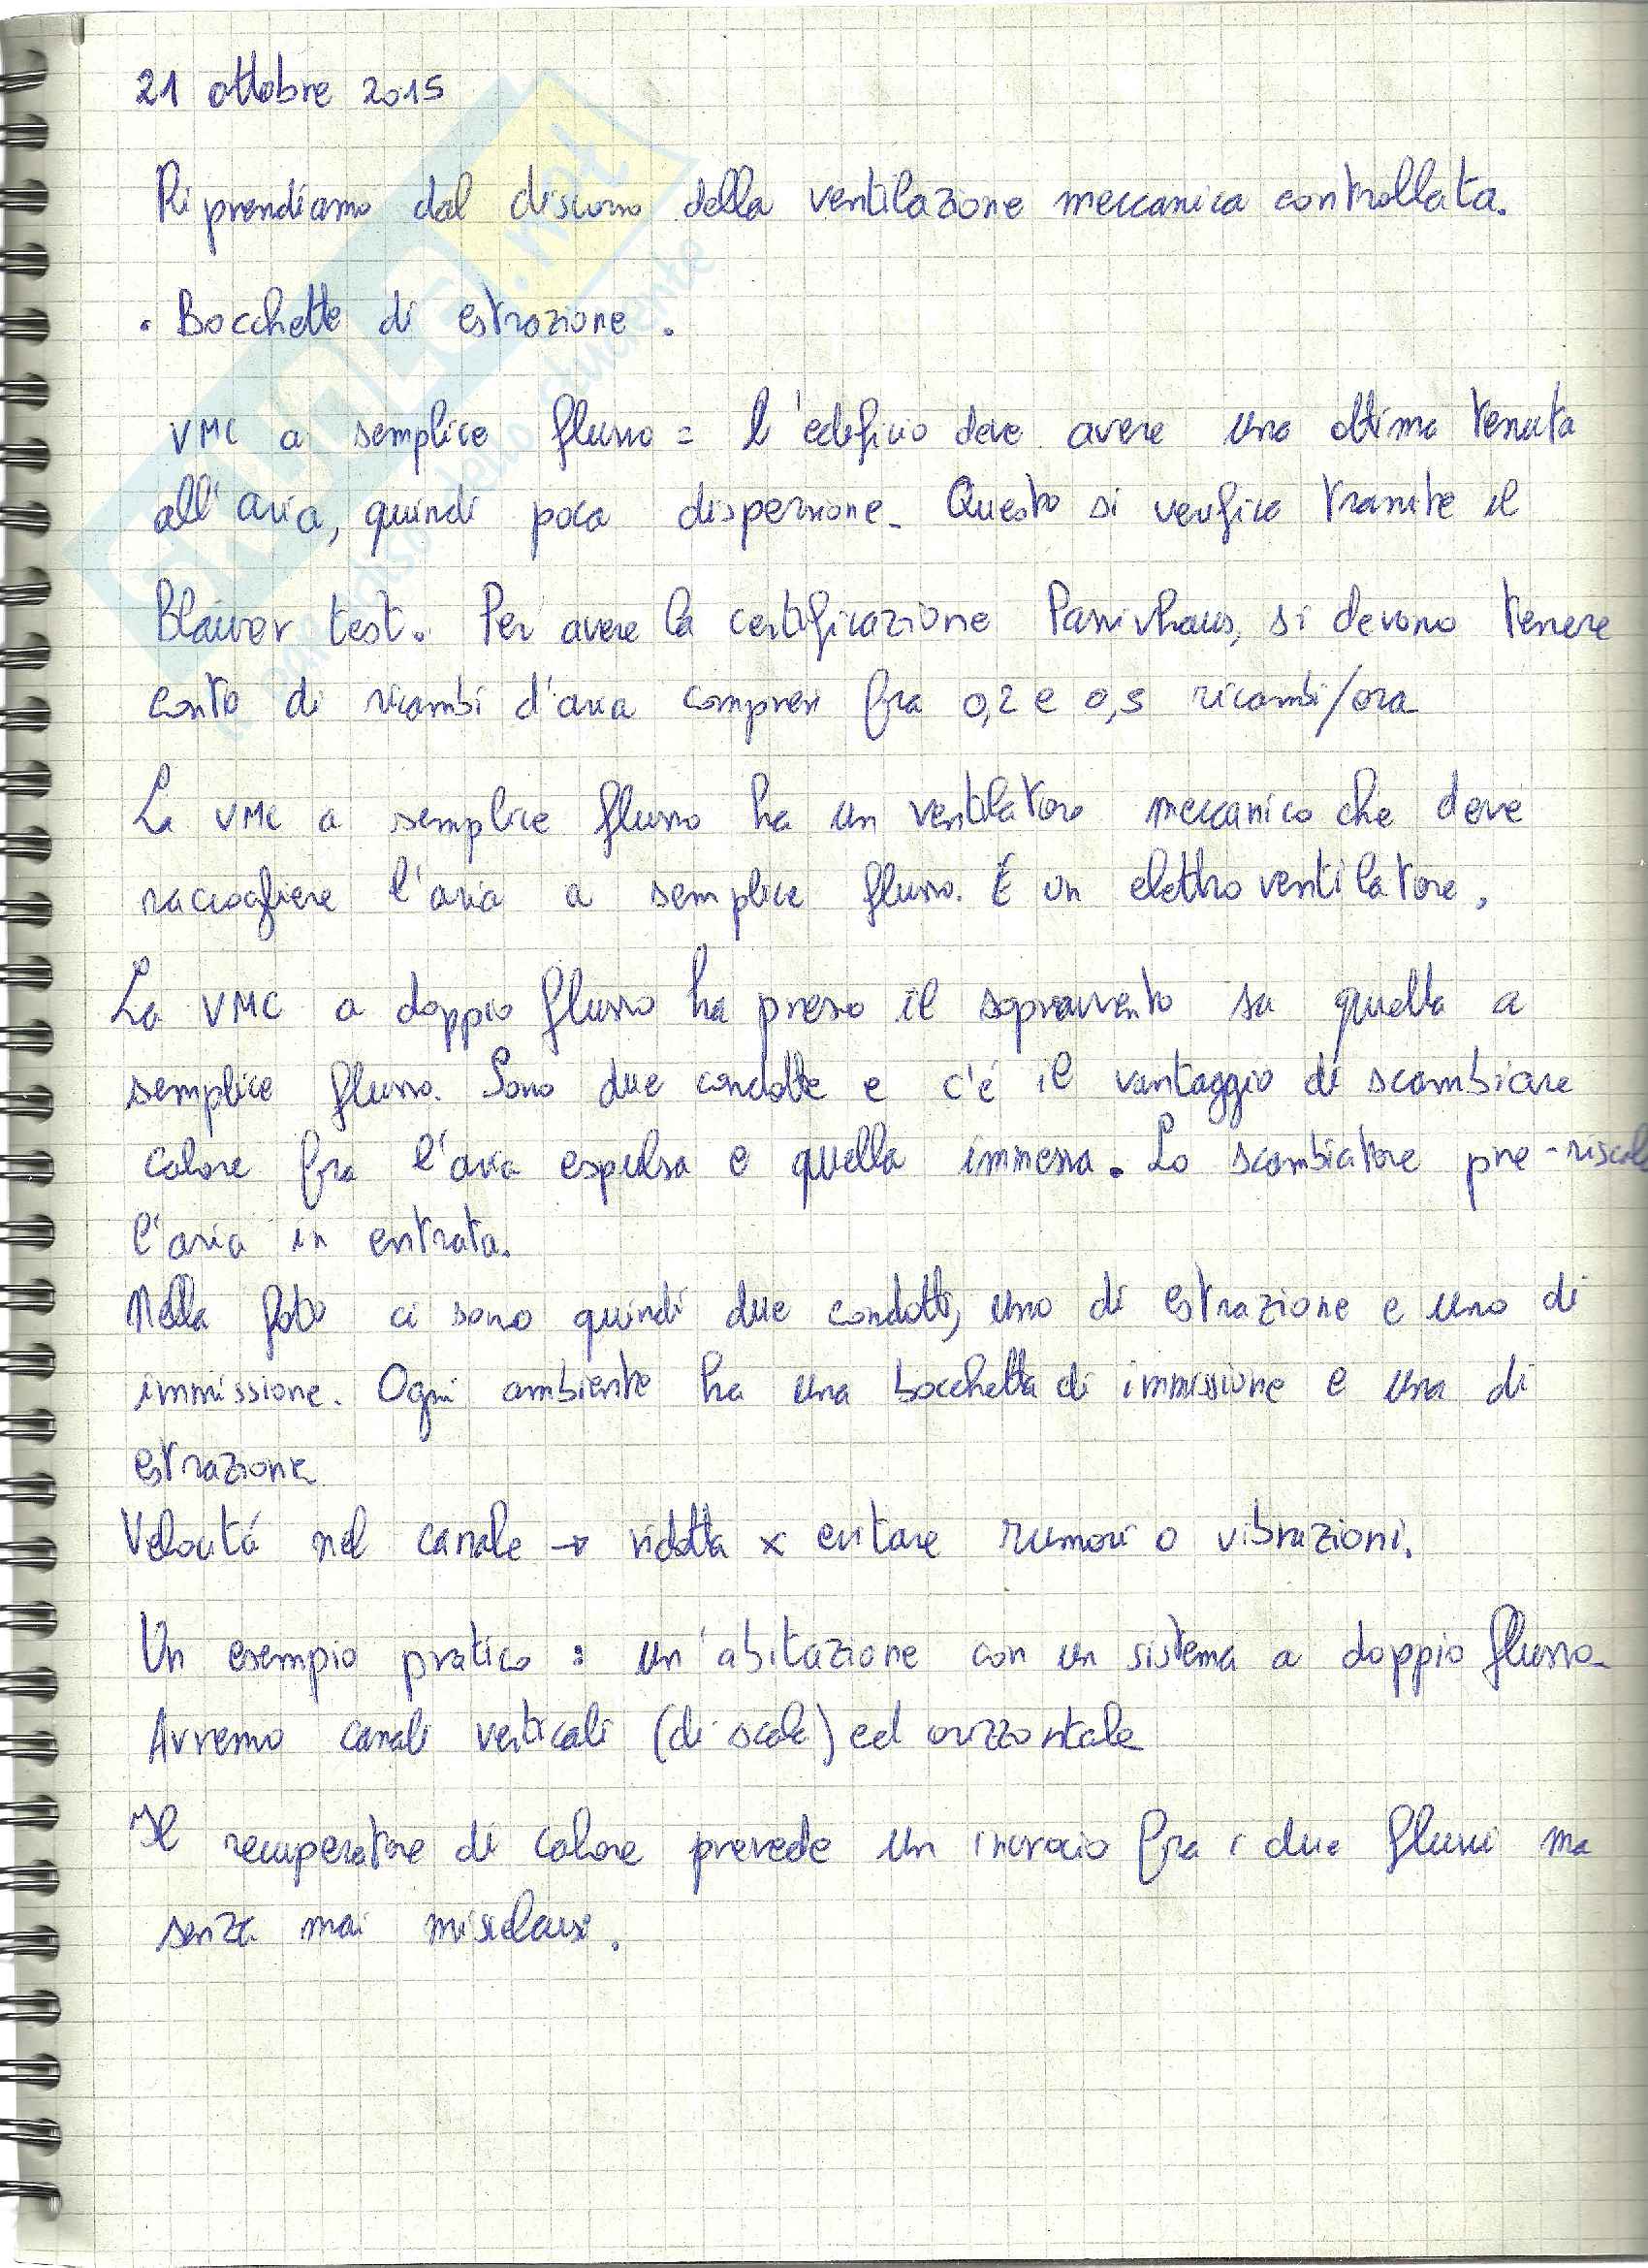 21 ottobre 2015
Riprendiamo dal discorso della ventilazione meccanica controllata.
• Bocchette di estrazione.
VMC a semplice flusso = l'edificio deve avere una ottima tenuta
all'aria, quindi poca dispersione. Questo si verifica tramite il
Blawer test. Per avere la certificazione Passivhaus, si devono tenere
conto di ricambi d'aria compresi fra 0,2 e 0,5 ricambi/ora
La VMC a semplice flusso ha un ventilatore meccanico che deve
raccogliere l'aria a semplice flusso. É un elettroventilatore.
La VMC a doppio flusso ha preso il sopravvento su quella a
semplice flusso. Sono due condotte e c'é il vantaggio di scambiare
calore fra l'aria espulsa e quella immessa. Lo scambiatore pre-riscal
l'aria in entrata.
Nella foto ci sono quindi due condotti, uno di estrazione e uno di
immissione. Ogni ambiente ha una bocchetta di immissione e una di
estrazione
Velocitá nel canale → ridotta x evitare rumori o vibrazioni.
Un esempio pratico: un'abitazione con un sistema a doppio flusso.
Avremo canali verticali (di scale) ed orizzontale
Il recuperatore di calore prevede un incrocio fra i due flussi ma
senza mai miscelarsi.